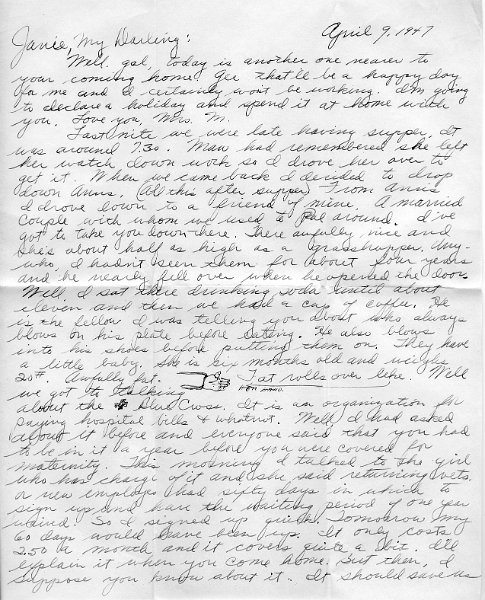 April 9, 1947
Janie, My Darling:
Well, gal, today is another one nearer to
your coming home. Gee that'll be a happy day
for me and I certainly won't be working. I'm going
to declare a holiday and spend it at home with
you. Love you, Mrs. M.
Last nite we were late having supper. It
was around 7:30. Mam had remembered she left
her watch down work so I drove her over to
get it. When we came back I decided to drop
down Anns. (All this after supper) From Anns
I drove down to a friend of mine. A married
couple with whom we used to pal around. I've
got to take you down there. There awfully nice and
she's about half as high as a grasshopper. Any-
who I hadn't seen them for about four years
and he nearly fell over when he opened the door.
Well, I sat there drinking soda until about
eleven and then we had a cup of coffee. He
is the fellow I was telling you about who always
blows on his plate before eating. He also blows
into his shoes before putting them on. They have
a little baby. She is six months old and weighs
20#. Awfully fat. Fat rolls over like. Well
we got to talking
about the Blue Cross. It is an organization for
paying hospital bills & whatnot. Well, I had asked
about it before and everyone said that you had
to be in it a year before you were covered for
maternity. This morning I talked to the girl
who has charge of it and she said returning vets.
or new employes had sixty days in which to
sign up and have the waiting period of one year
waived. So I signed up quick. Tomorrow my
60 days would have been up. It only costs
2.50 a month and it covers quite a bit. I'll
explain it when you come home. But then, I
suppose you know about it. It should save us